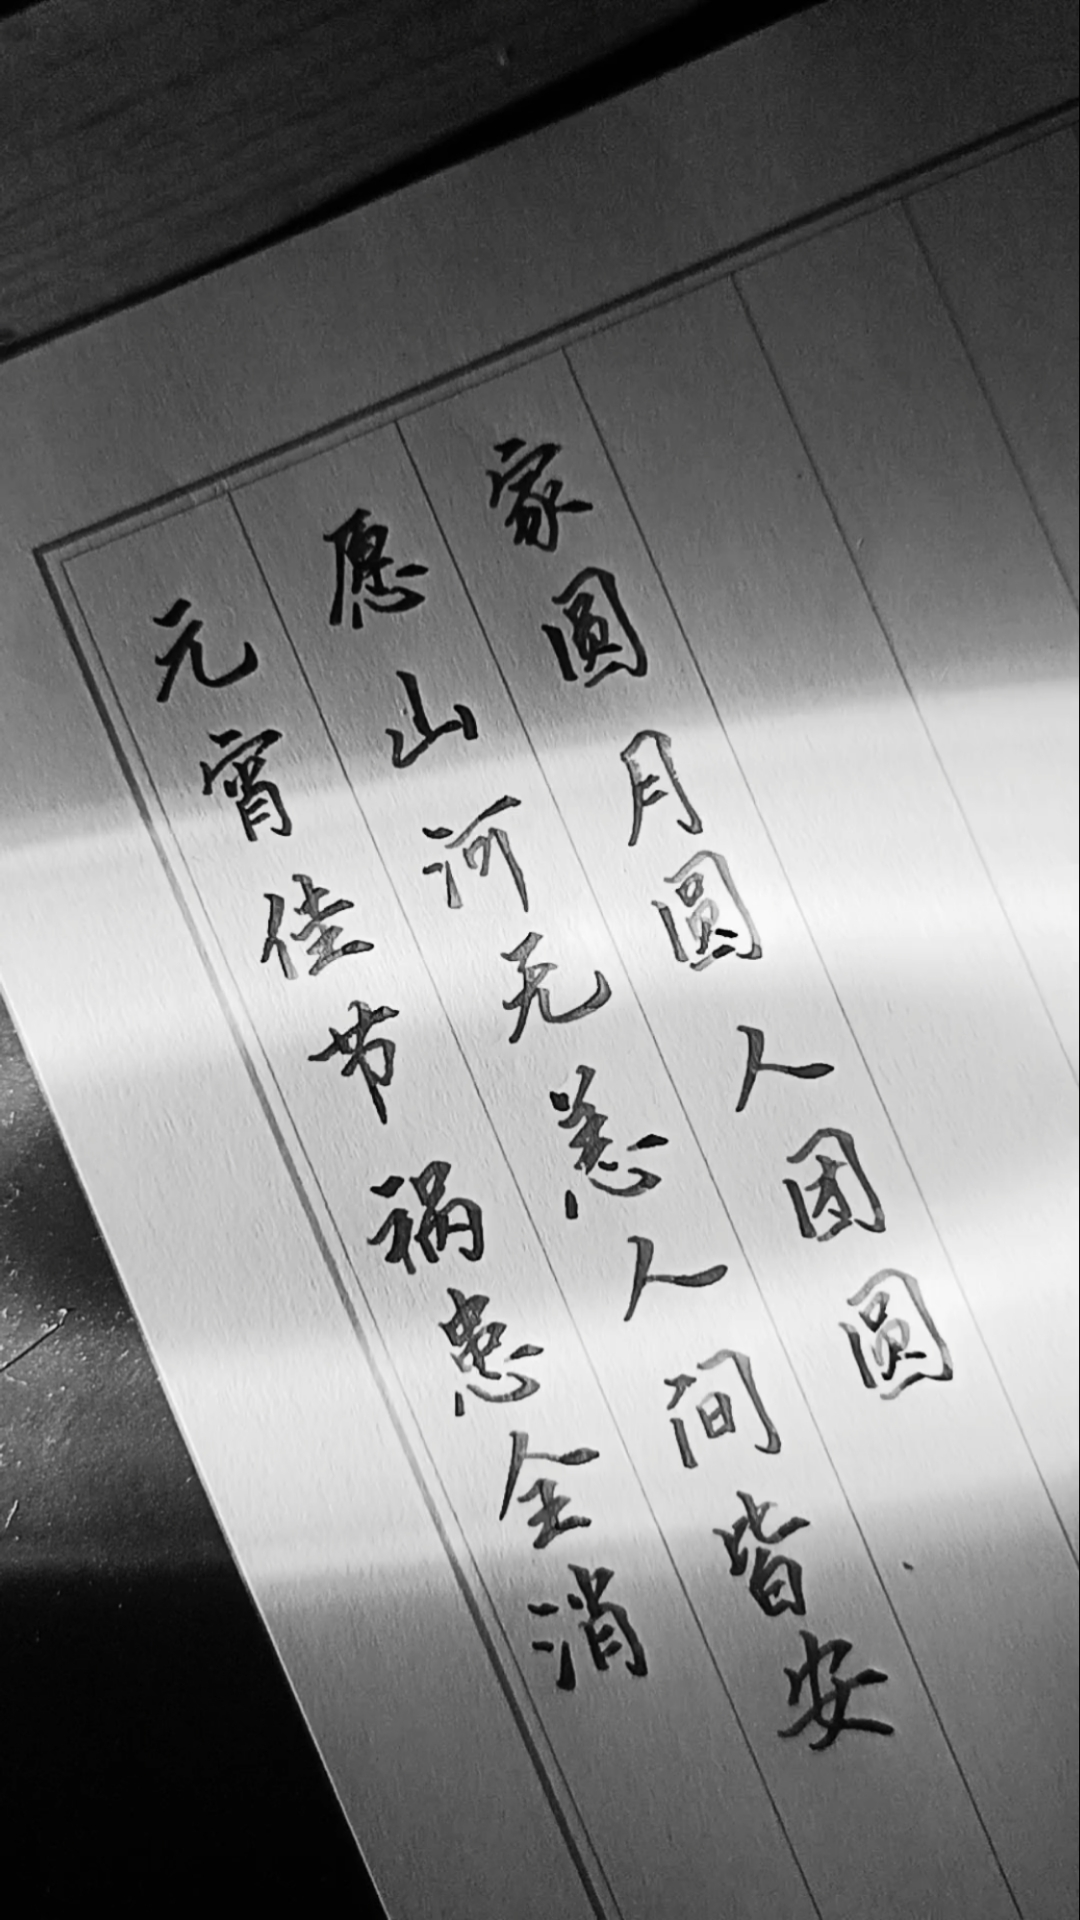 元宵佳节祸患全消
愿山河无恙人间皆安
家圆月圆人团圆